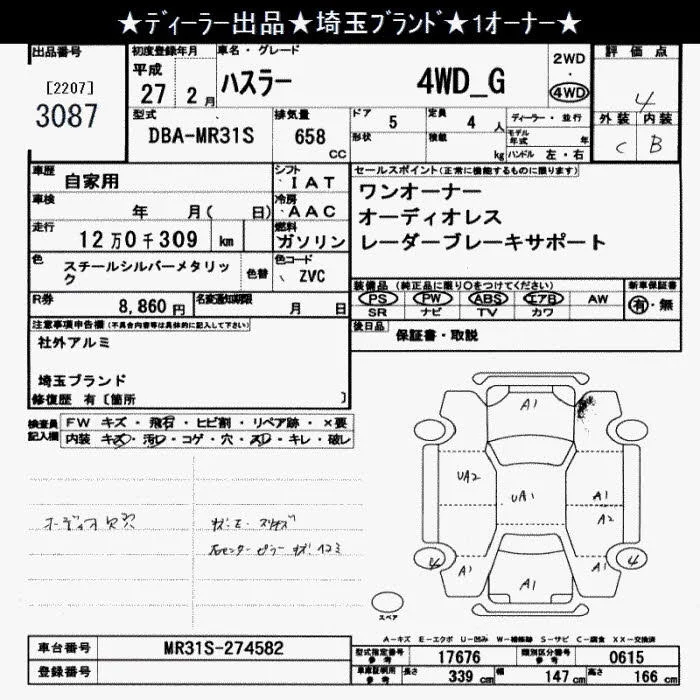 ★ディーラー出品★埼玉ブランド★1オーナー★
出品番号
[2207]
3087
初度登録年月
平成
27 2 月
車名・グレード
ハスラー 4WD_G
2WD
・
4WD
評価点
4
外装 内装
C B
型式
DBA-MR31S
排気量
658
CC
ドア 5
形状
定員 4 人
積載 kg
ディーラー・並行
モデル年式 年
ハンドル 左・右
車歴
自家用
シフト
・IAT
車検
年 月( 日)
冷房
・AAC
走行
12万0千309 km
燃料
ガソリン
色
スチールシルバーメタリック
色替
色コード
ZVC
セールスポイント(正常に機能するものに限ります)
ワンオーナー
オーディオレス
レーダーブレーキサポート
R券
8,860 円
名変通知期限
月 日
装備品(純正品に限り○をつけてください)
PS PW ABS エアB AW
SR ナビ TV カワ
新車保証書
有・無
後日品
保証書・取説
注意事項申告欄(不具合内容等は具体的に記入して下さい)
社外アルミ
埼玉ブランド
修復歴 有〔箇所 〕
検査員記入欄
FW キズ・飛石・ヒビ割・リペア跡・×要
内装 キズ・汚レ・コゲ・穴・スレ・キレ・破レ
オーディオ欠
A1
UA2
UA1
A1
A2
4
A1
A1
A1
4
スペア
A-キズ E-エクボ U-凹み W-補修跡 S-サビ C-腐食 XX-交換済
車台番号
MR31S-274582
登録番号
型式指定番号
参考
17676
類別区分番号
参考
0615
車庫証明用
参考
長さ 339 cm
幅 147 cm
高さ 166 cm